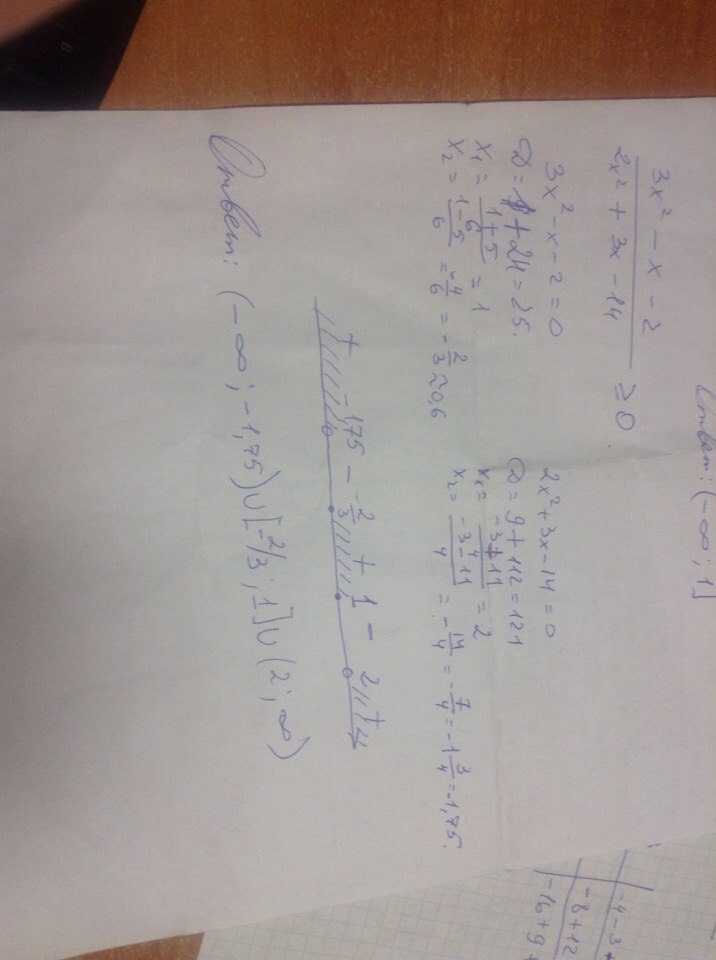 Ответ: (-∞; 1]
3x² - x - 2
2x² + 3x - 14 ≥ 0
3x² - x - 2 = 0
D = 1 + 24 = 25.
x₁ = 1+5/6 = 1
x₂ = 1-5/6 = -4/6 = -2/3 ≈ 0,6
2x² + 3x - 14 = 0
D = 9 + 112 = 121
x₁ = -3+11/4 = 2
x₂ = -3-11/4 = -14/4 = -7/4 = -1 3/4 = -1,75.
+ -1,75 - -2/3 + 1 - 2 +
Ответ: (-∞; -1,75) ∪ [-2/3; 1] ∪ (2; ∞)
-4-3
-8+12
-16+9+